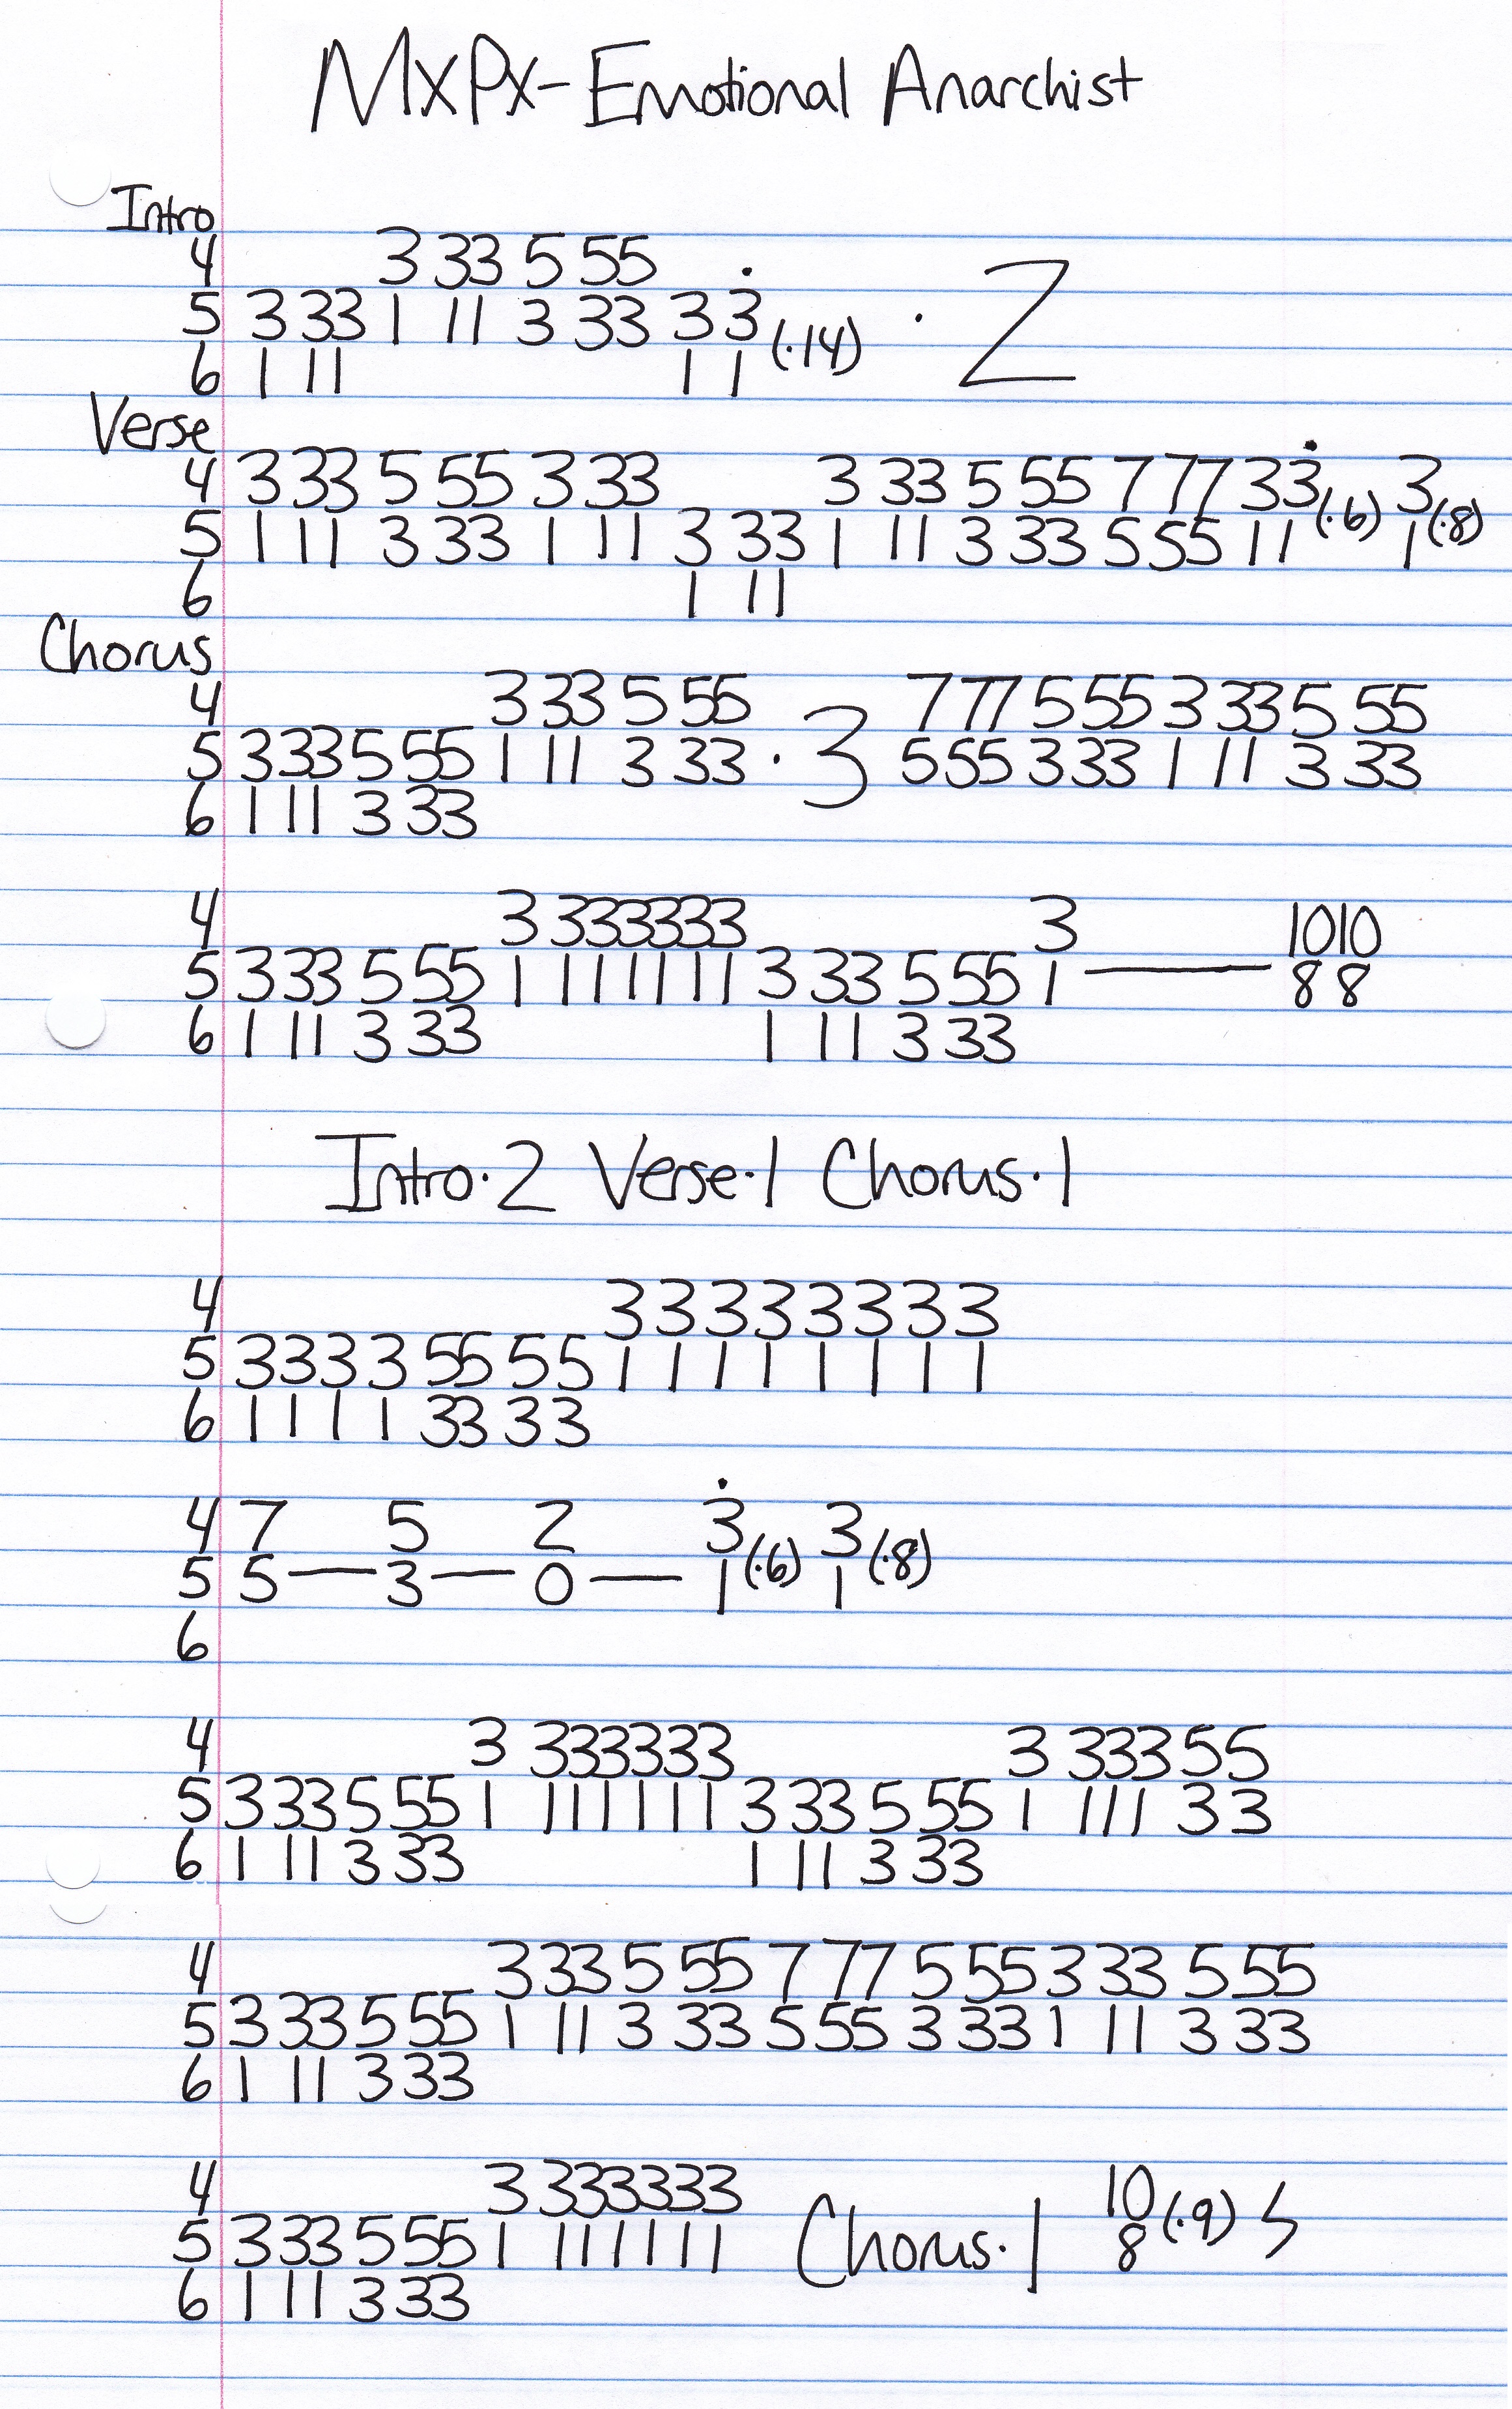 MXPX-Emotional Anarchist
Intro
4 3 33 5 55
5 3 33 1 11 3 33 3 3 (·14) · 2
6 1 11 1 1
Verse
4 3 33 5 55 3 33 3 33 5 55 7 77 33 (·6) 3 (·8)
5 1 11 3 33 1 11 3 33 1 11 3 33 5 55 11 1
6 1 11
Chorus
4 3 33 5 55 7 77 5 55 3 33 5 55
5 3 33 5 55 1 11 3 33 · 3 5 55 3 33 1 11 3 33
6 1 11 3 33
4 3 333333 3 1010
5 3 33 5 55 1 111111 3 33 5 55 1 — 8 8
6 1 11 3 33 1 11 3 33
Intro·2 Verse·1 Chorus·1
4 3 3 3 3 3 3 3 3
5 3 3 3 3 55 5 5 1 1 1 1 1 1 1 1
6 1 1 1 1 33 3 3
4 7 5 2 3 (·6) 3 (·8)
5 5 — 3 — 0 — 1 1
6
4 3 333333 3 333 5 5
5 3 33 5 55 1 111111 3 33 5 55 1 111 3 3
6 1 11 3 33 1 11 3 33
4 3 33 5 55 7 77 5 55 3 33 5 55
5 3 33 5 55 1 11 3 33 5 55 3 33 1 11 3 33
6 1 11 3 33
4 3 333333 10
5 3 33 5 55 1 111111 Chorus·1 8 (·9)
6 1 11 3 33